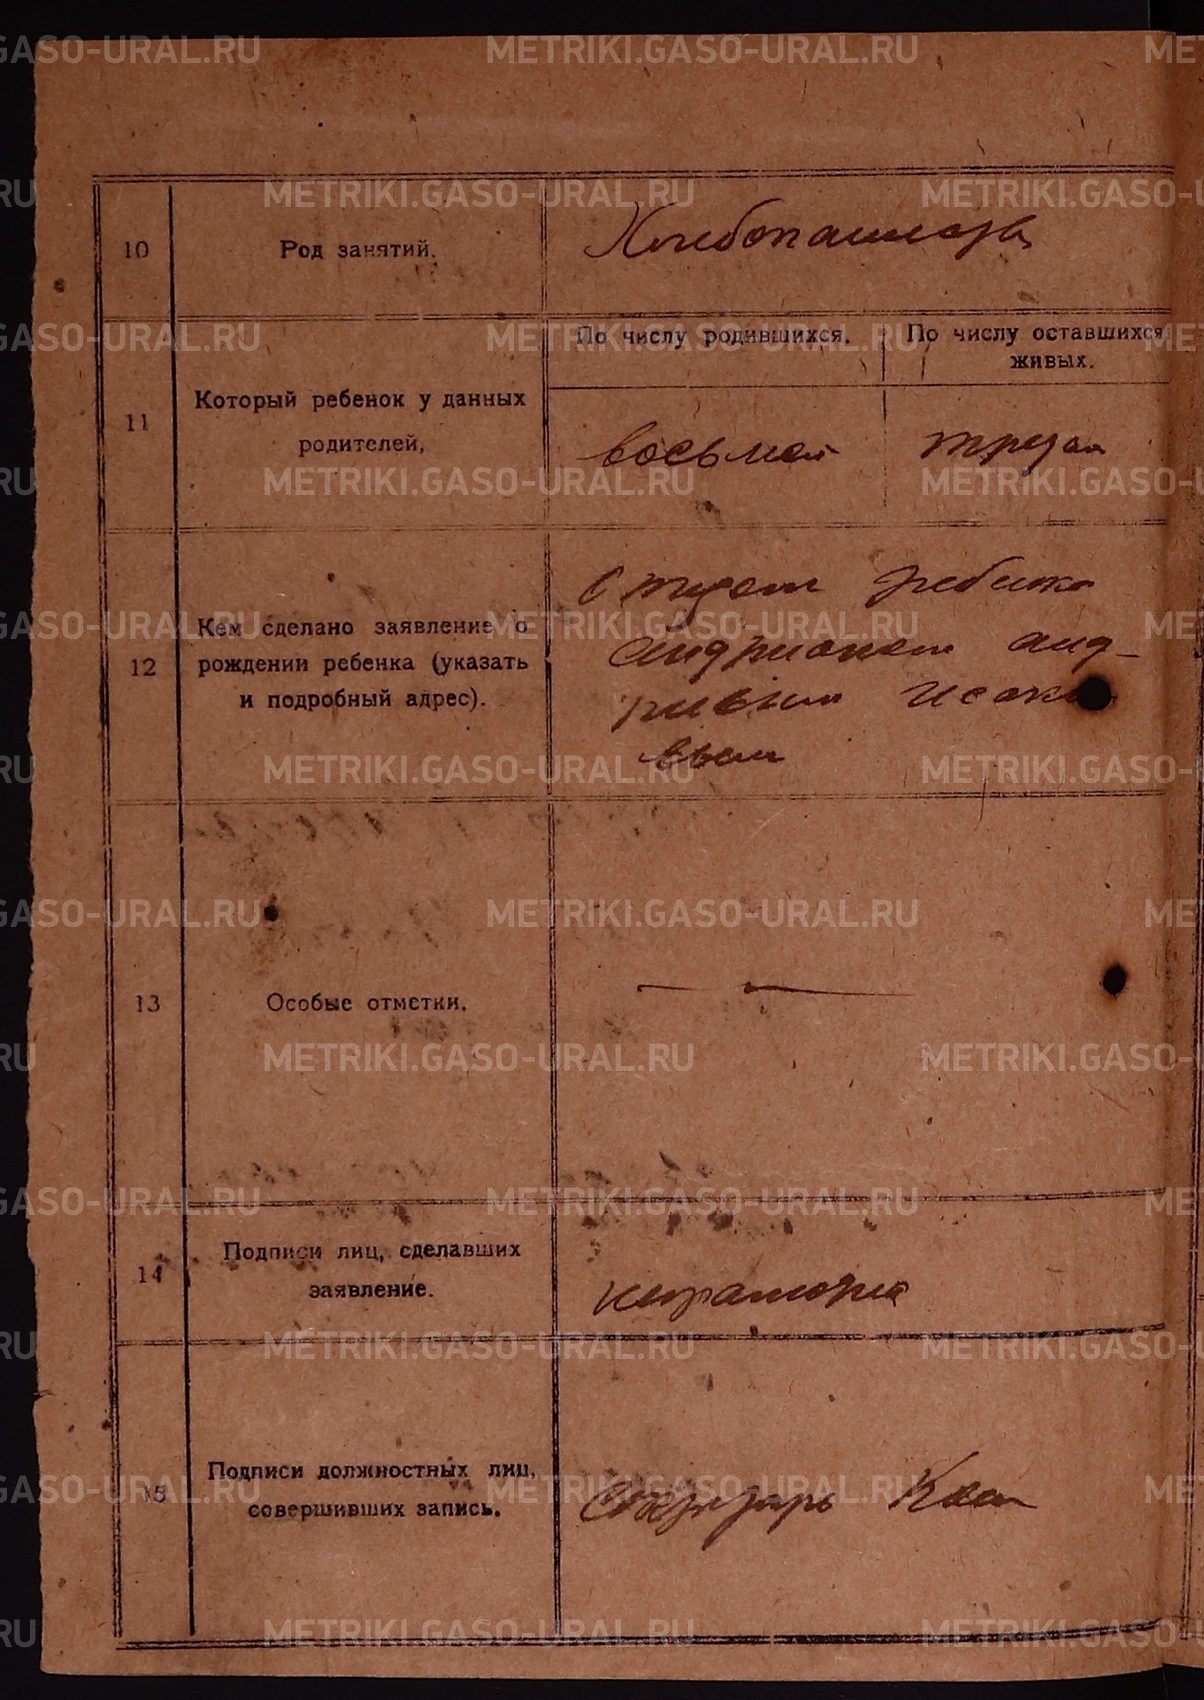 10 Род занятий. Хлебопашество
По числу родившихся. По числу оставшихся живых.
11 Который ребенок у данных родителей,
восьмой третий
12 Кем сделано заявление о рождении ребенка (указать и подробный адрес).
Отцом ребенка
Андрианом
Исако
вым
13 Особые отметки.
14 Подписи лиц, сделавших заявление.
неграмотна
15 Подписи должностных лиц, совершивших запись.
Секретарь
METRIKI.GASO-URAL.RU